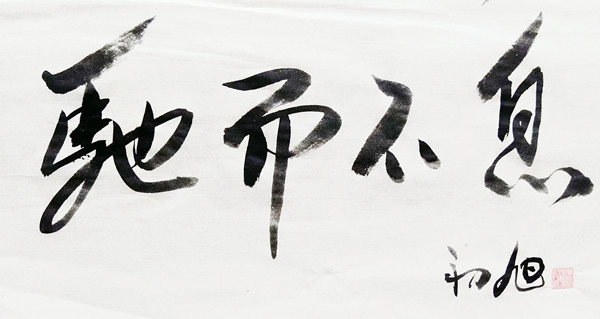 馳而不息
初旭